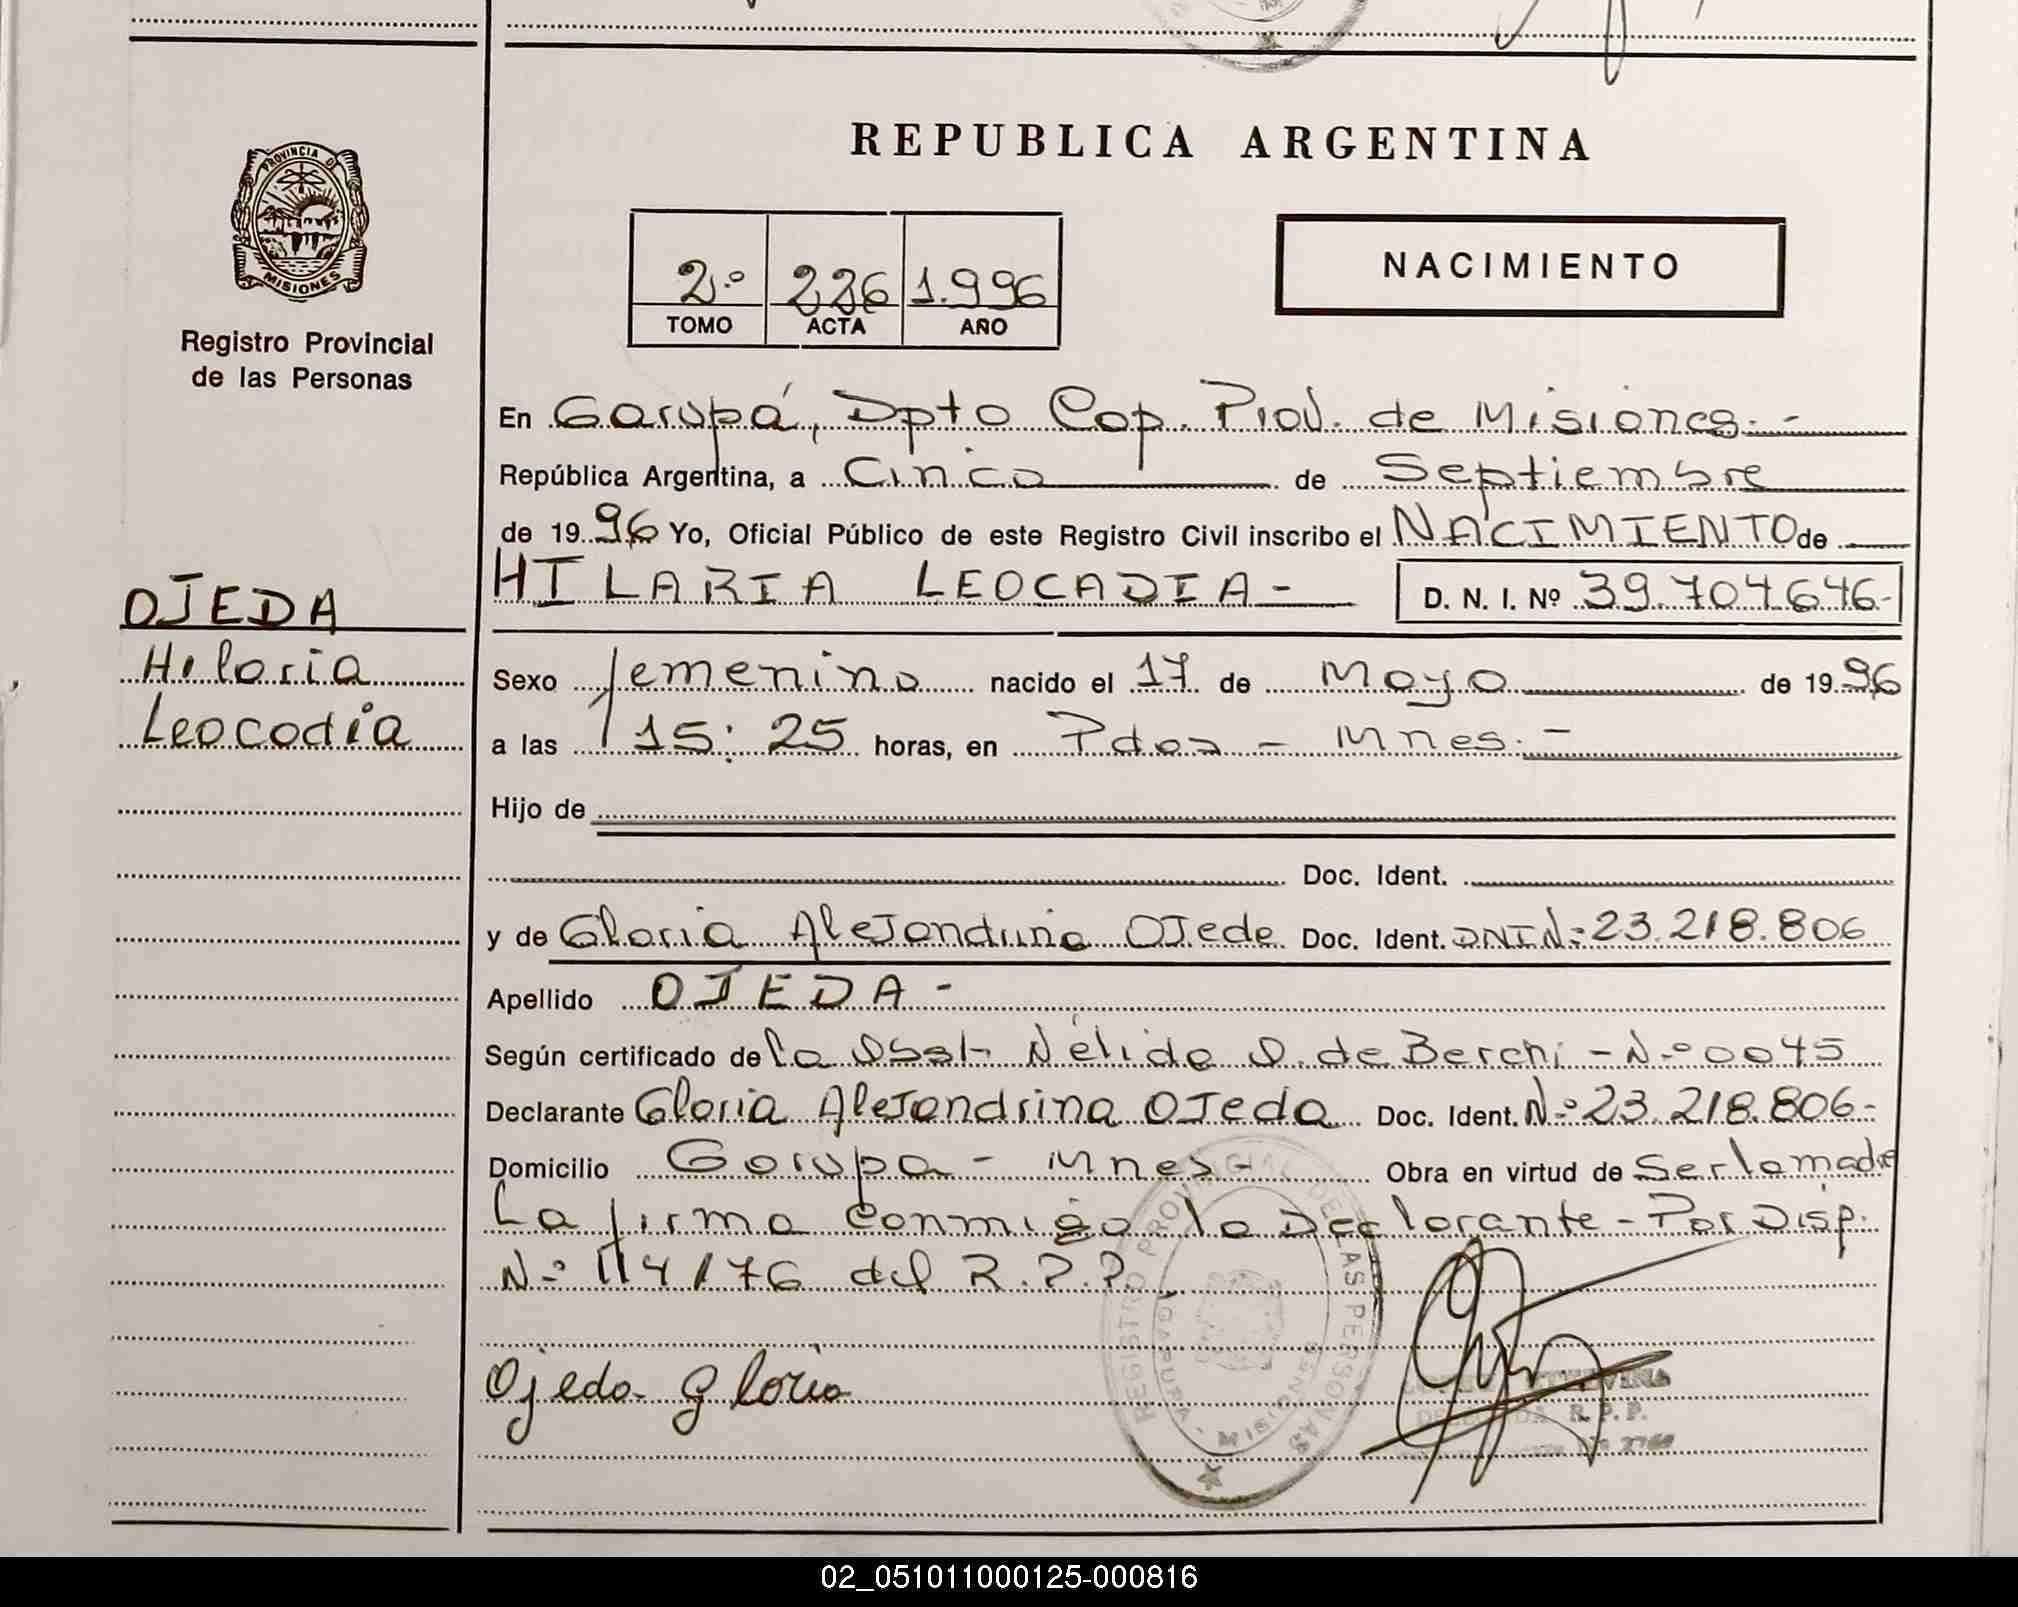 REPUBLICA ARGENTINA
PROVINCIA D
MISIONES
Registro Provincial
de las Personas
2.º 226 1.996
TOMO ACTA AÑO
NACIMIENTO
En Garupá, Dpto Cap. Prov. de Misiones.-
República Argentina, a Cinco de Septiembre
de 1996 Yo, Oficial Público de este Registro Civil inscribo el NACIMIENTO de
HILARIA LEOCADIA- D. N. I. Nº 39.704.646-
OJEDA
Hilaria
Leocadia
Sexo femenino nacido el 17 de Mayo de 1996
a las 15:25 horas, en Pdas - Mnes.-
Hijo de
Doc. Ident.
y de Gloria Alejandrina Ojeda Doc. Ident. DNI Nº 23.218.806
Apellido OJEDA-
Según certificado de la Obst. Nélida de Berchi - Nº 0045
Declarante Gloria Alejandrina Ojeda Doc. Ident. Nº 23.218.806-
Domicilio Garupa - Mnes- Obra en virtud de Ser la madre
La firma conmigo la Declarante - Por Disp.
Nº 114/76 del R.P.P.
Ojeda Gloria
REGISTRO PROVINCIAL DE LAS PERSONAS
GARUPA - MISIONES
DELEGADA R.P.P.
02_051011000125-000816